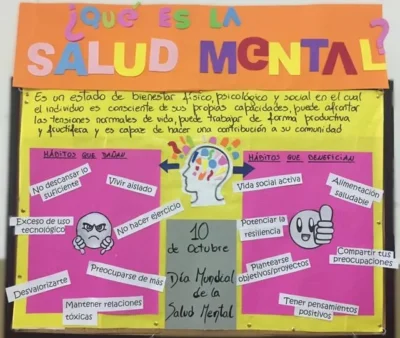 ¿QUÉ ES LA
SALUD MENTAL?
Es un estado de bienestar físico, psicológico y social en el cual
el individuo es consciente de sus propias capacidades, puede afrontar
las tensiones normales de vida, puede trabajar de forma productiva
y fructífera y es capaz de hacer una contribución a su comunidad
HÁBITOS QUE DAÑAN
No descansar lo
suficiente
Vivir aislado
Exceso de uso
tecnológico
No hacer ejercicio
Preocuparse de más
Desvalorizarte
Mantener relaciones
tóxicas
10
de Octubre
Día Mundial
de la
Salud Mental
HÁBITOS QUE BENEFICIAN
Vida social activa
Alimentación
saludable
Potenciar la
resiliencia
Compartir tus
preocupaciones
Plantearse
objetivos/proyectos
Tener pensamientos
positivos